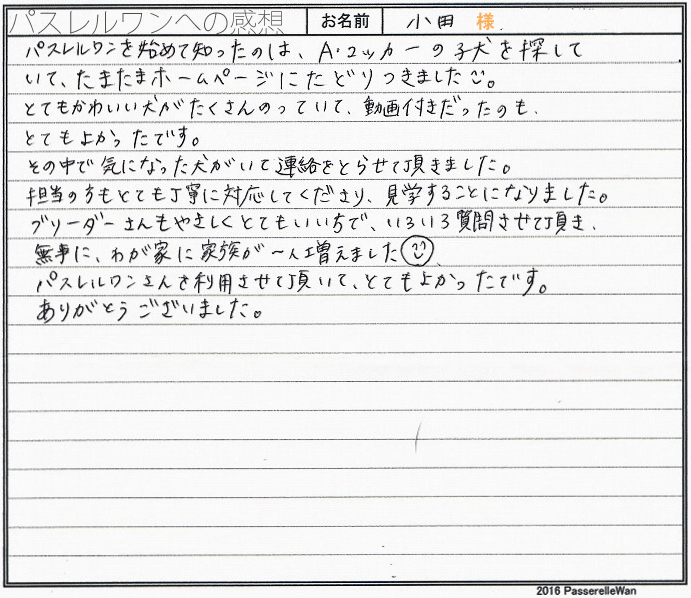 パスレルワンへの感想 お名前 小田 様
パスレルワンを始めて知ったのは、A・コッカーの子犬を探して
いて、たまたまホームページにたどりつきました。
とてもかわいい犬がたくさんのっていて、動画付きだったのも、
とてもよかったです。
その中で気になった犬がいて連絡をとらせて頂きました。
担当の方もとても丁寧に対応してくださり、見学することになりました。
ブリーダーさんもやさしくとてもいい方で、いろいろ質問させて頂き、
無事に、わが家に家族が一人増えました
パスレルワンさんを利用させて頂いて、とてもよかったです。
ありがとうございました。
2016 PasserelleWan